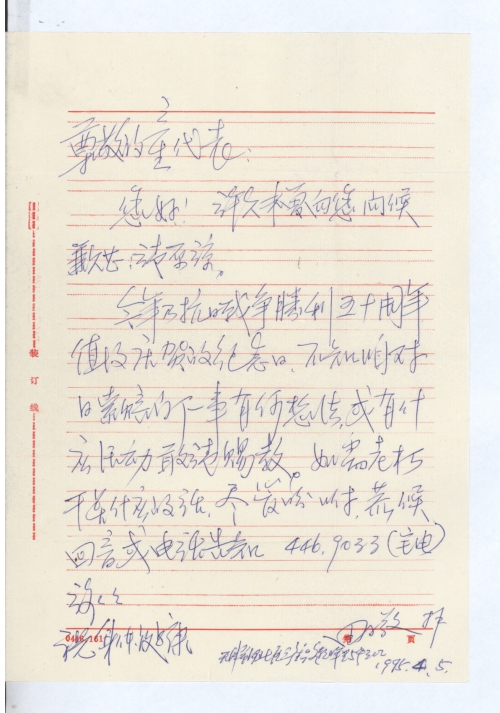 尊敬的童代表:
您好! 许久未曾向您问候
歉甚,请原谅。
今年乃抗日战争勝利五十周年
值得庆贺的纪念日,不知咱对
日索赔的下一事有何想法或有什
么活动敢请赐教。如需老朽
干些什么的话,尽管吩咐,恭候
回音或电话告知 446.9033(宅电
祝身体健康
0416.161 第 页
1995.4.5.
装 订 线